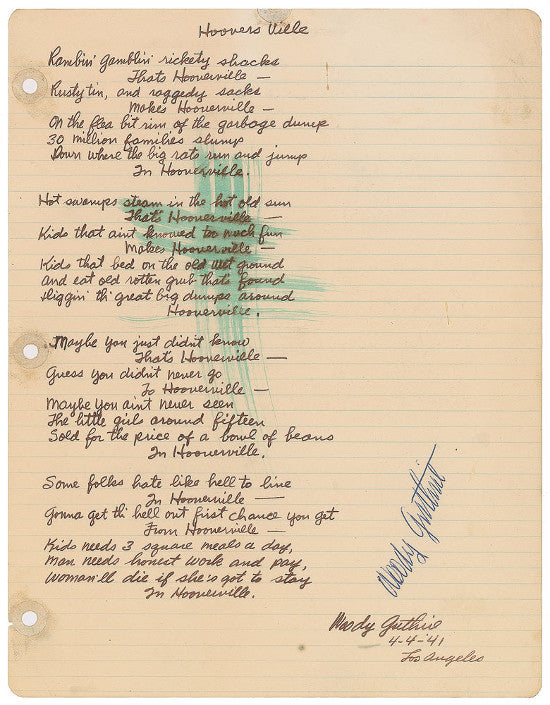 Hoovers Ville
Ramblin' Gamblin' rickety shacks
Thats Hooverville —
Rusty tin, and raggedy sacks
Makes Hooverville —
On the flea bit rim of the garbage dump
30 million families slump
Down where the big rats run and jump
In Hooverville.
Hot swamps steam in the hot old sun
That's Hooverville —
Kids that aint knowed too much fun
Makes Hooverville —
Kids that bed on the old wet ground
and eat old rotten grub that's found
Diggin' th' great big dumps around
Hooverville.
Maybe you just didn't know
That's Hooverville —
Guess you didn't never go
To Hooverville —
Maybe you ain't never seen
The little girls around fifteen
Sold for the price of a bowl of beans
In Hooverville.
Some folks hate like hell to live
In Hooverville —
Gonna get th' hell out first chance you get
From Hooverville —
Kids needs 3 square meals a day,
Man needs honest work and pay,
Woman'll die if she's got to stay
In Hooverville.
Woody Guthrie
Woody Guthrie
4-4-'41
Los Angeles